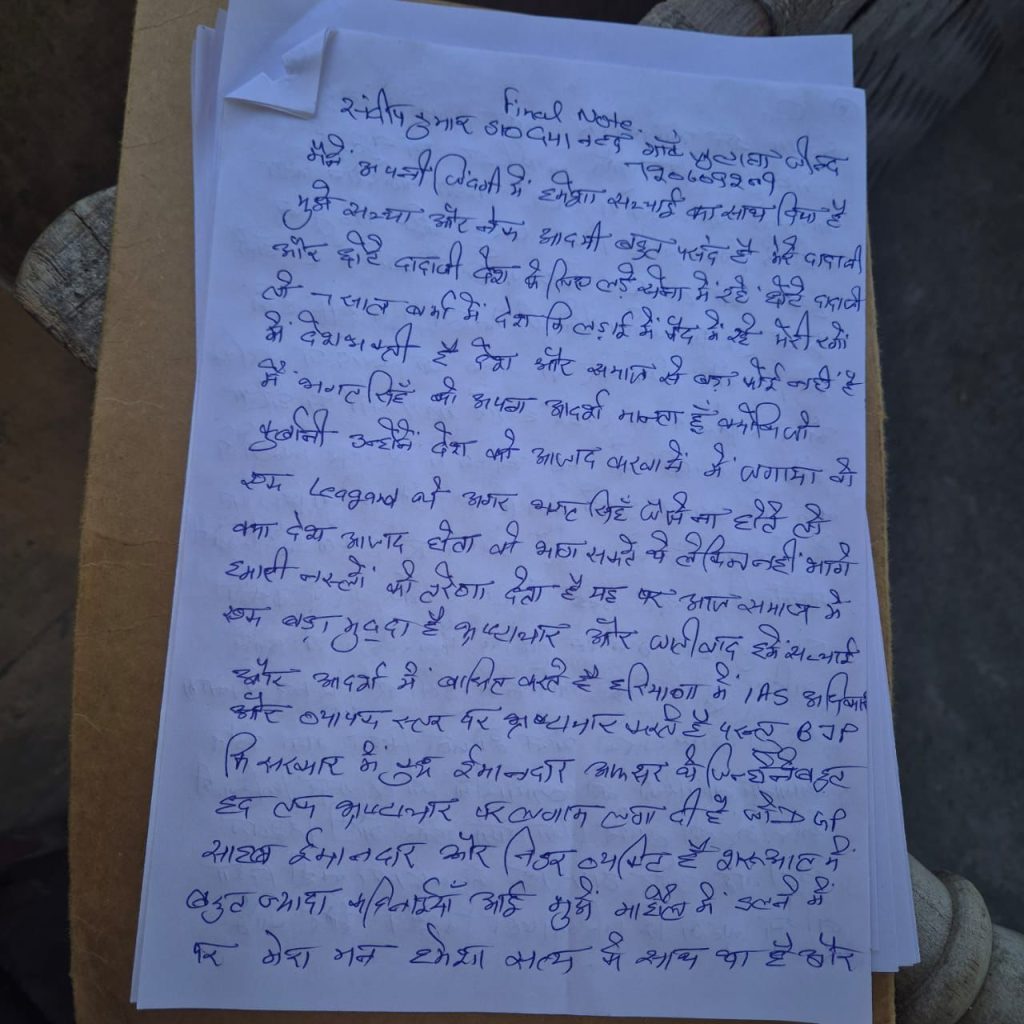 Final Note
संदीप कुमार S/O दया नन्द गांव जुलाना जीन्द
मैंने अपनी जिंदगी में हमेशा सच्चाई का साथ दिया है
मुझे सच्चा और नेक आदमी बहुत पसंद है मेरे दादाजी
और छोटे दादाजी देश के लिए लड़े सेना में रहे छोटे दादाजी
तो 7 साल बर्मा में देश कि लड़ाई में कैद में रहे मेरी रगों
में देशभक्ती है देश और समाज से बड़ा कोई नहीं है
मैं भगत सिहँ को अपना आदर्श मानता हूँ क्योंकि जो
कुर्बानी उन्होंने देश को आजाद करवाने में लगाया वो
एक Leagand थे अगर भगत सिहँ जैसे ना होते तो
क्या देश आजाद होता वो भाग सकते थे लेकिन नहीं भागे
हमारी नस्लों को प्रेरणा देता है यह पर आज समाज में
एक बड़ा मुद्दा है भ्रष्टाचार और जातीवाद हमें सच्चाई
और आदर्श में बाधित करते है हरियाणा में IAS अधिकारी
और व्यापक स्तर पर भ्रष्टाचार करते है परन्तु BJP
कि सरकार में कुछ ईमानदार अफसर थे जिन्होंने बहुत
हद तक भ्रष्टाचार पर लगाम लगा दी है जो DGP
साहब ईमानदार और निडर व्यक्ति है शुरूआत में
बहुत ज्यादा कठिनाईयाँ आई मुझे माहौल में ढलने में
पर मेरा मन हमेशा सत्य के साथ था है और